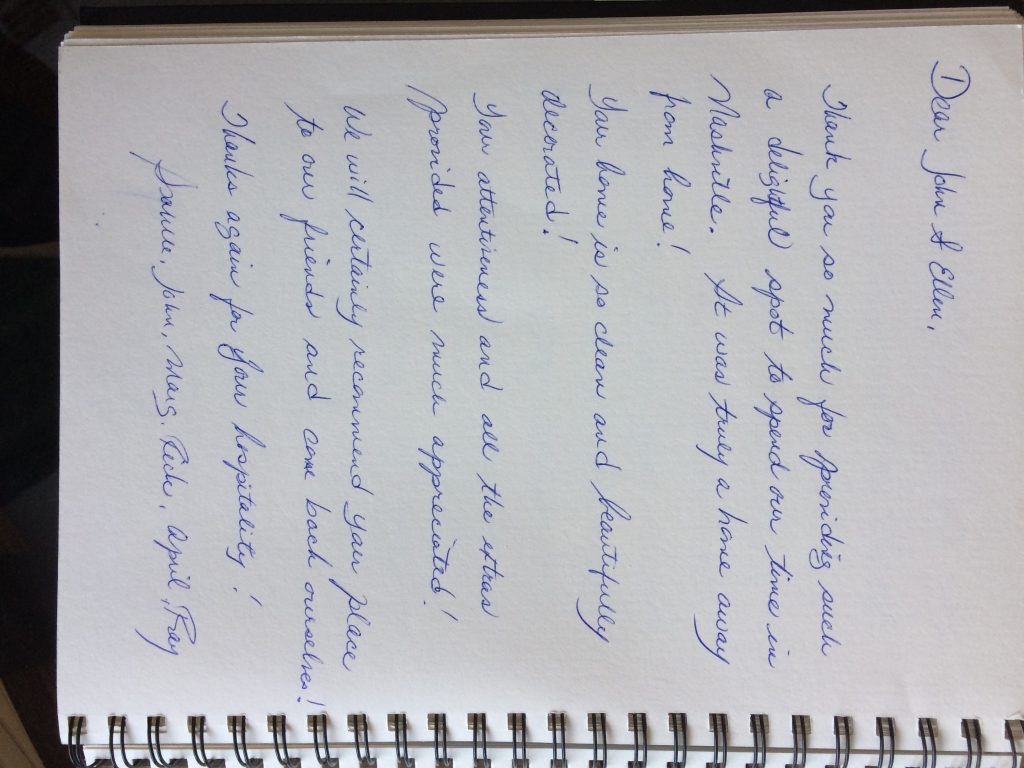 Dear John & Ellen,
Thank you so much for providing such
a delightful spot to spend our time in
Nashville. It was truly a home away
from home!
Your home is so clean and beautifully
decorated!
Your attentiveness and all the extras
provided were much appreciated!
We will certainly recommend your place
to our friends and come back ourselves!
Thanks again for your hospitality!
John, Marg, Rick, April, Ray